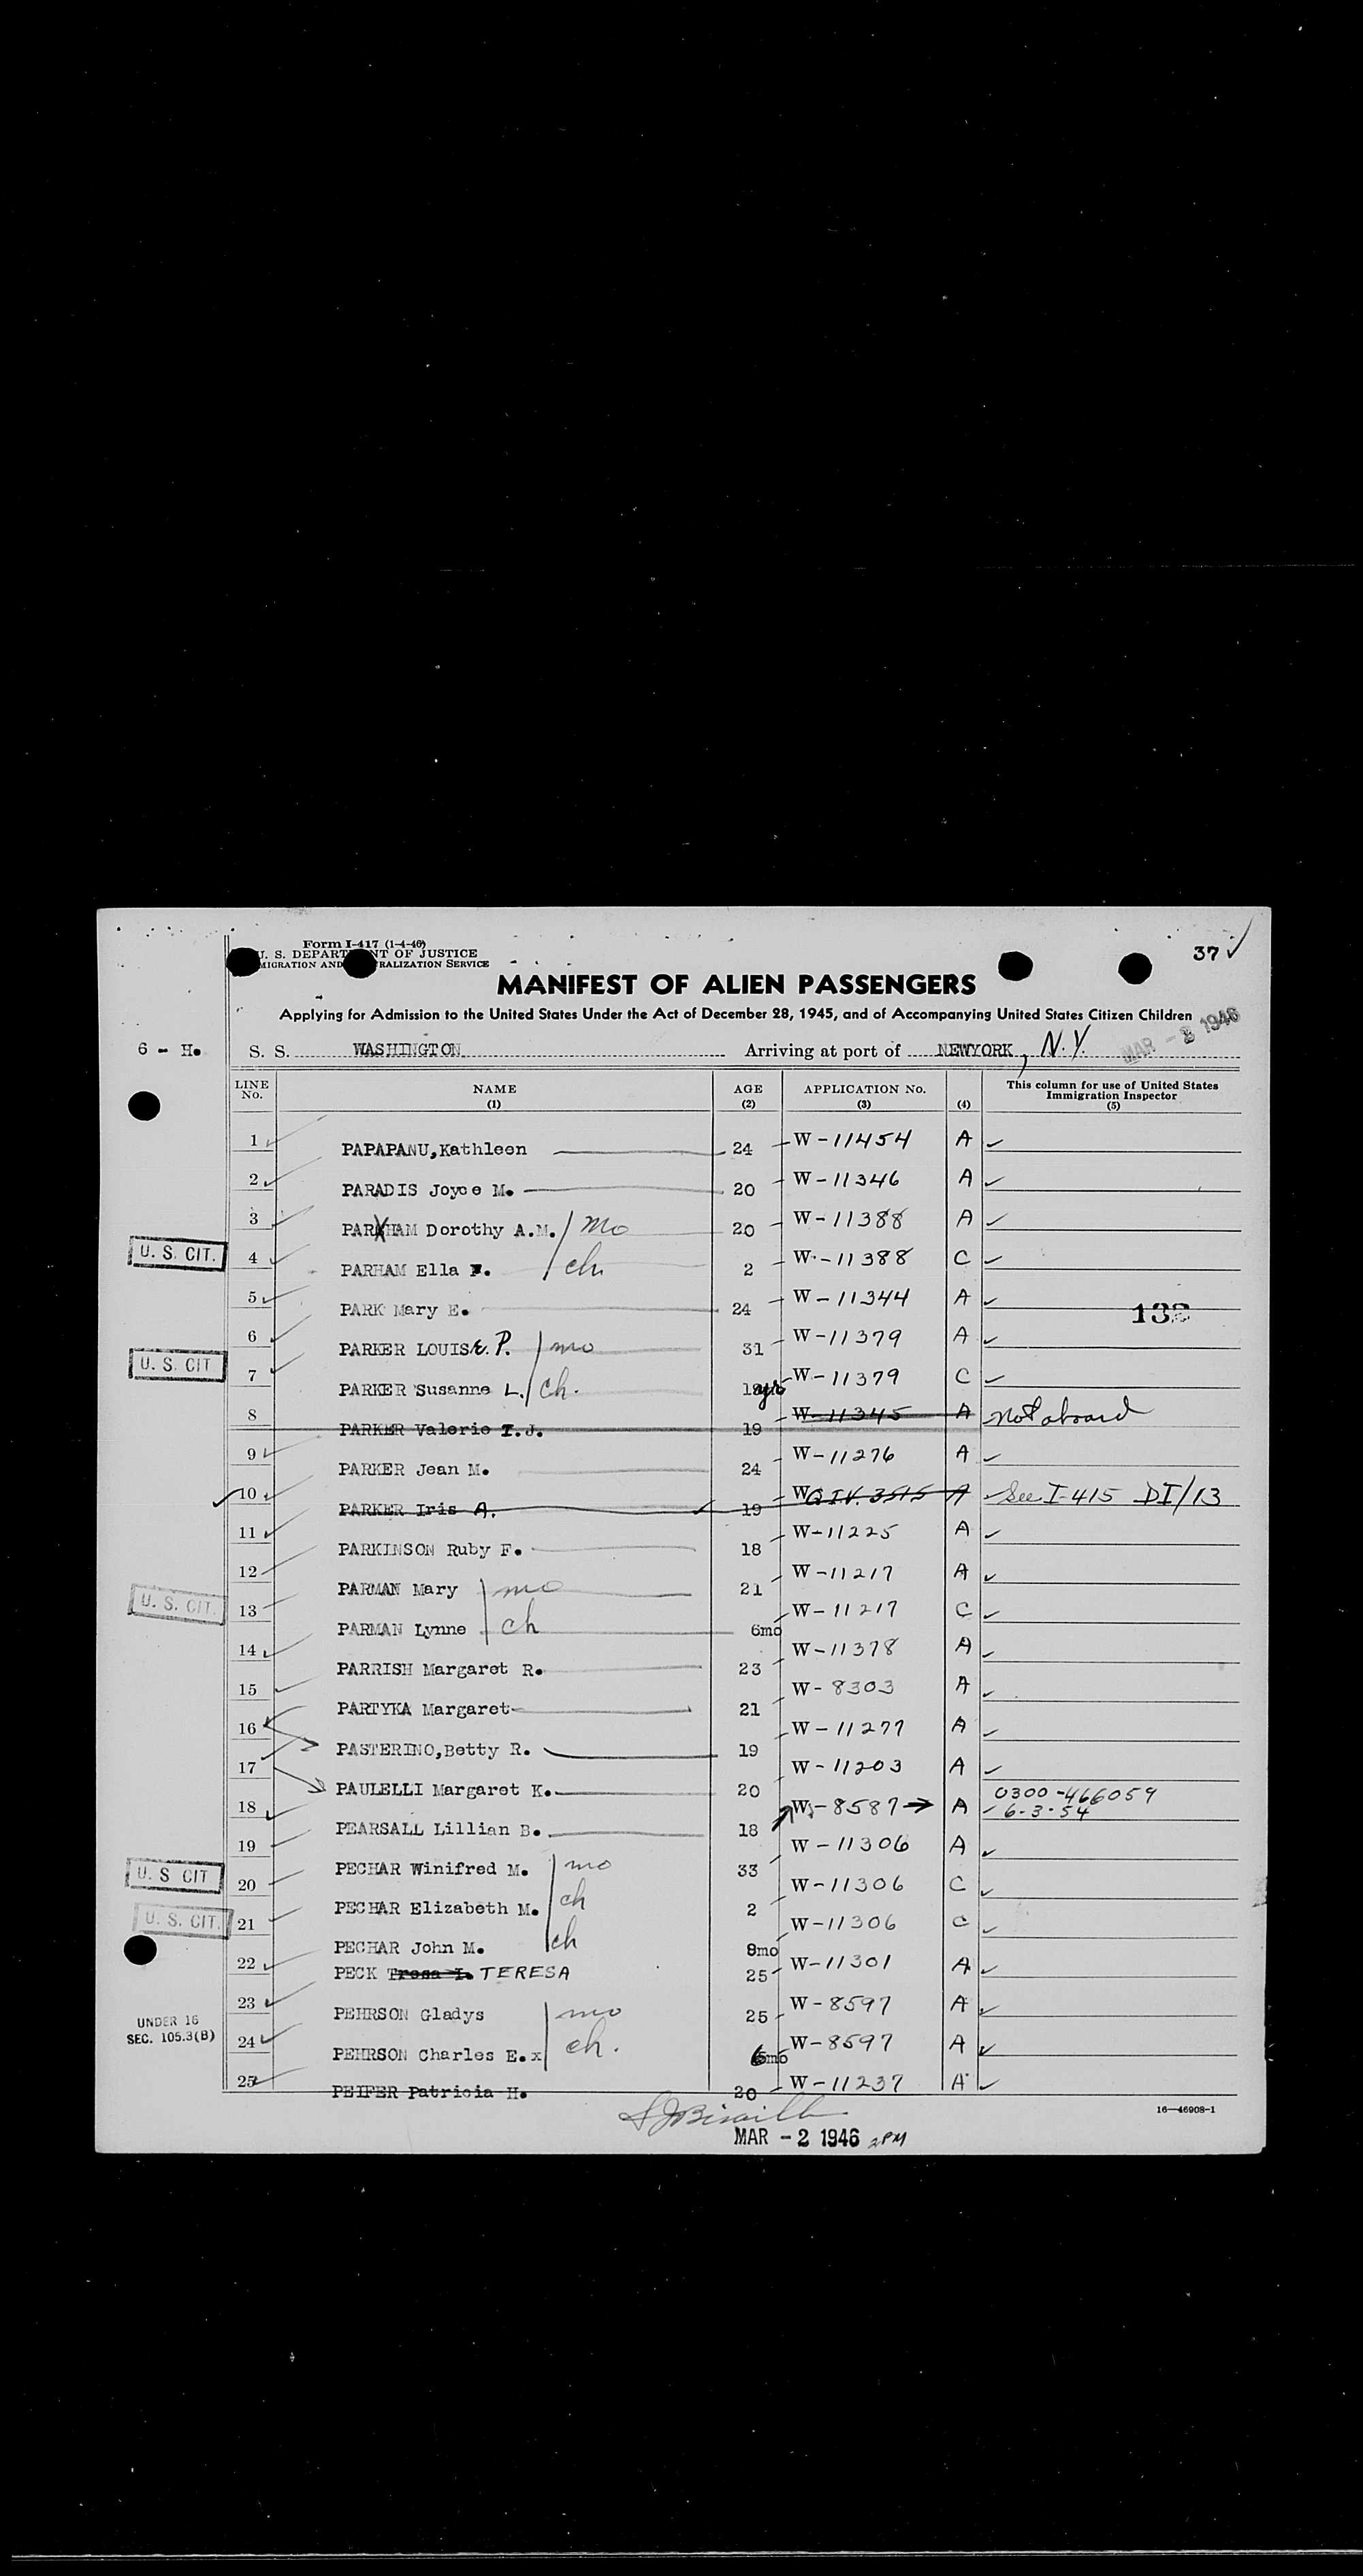 Form I-417 (1-4-46)
U. S. DEPART NT OF JUSTICE
MIGRATION AND RALIZATION SERVICE
37 ✓
MANIFEST OF ALIEN PASSENGERS
Applying for Admission to the United States Under the Act of December 28, 1945, and of Accompanying United States Citizen Children
MAR - 2 1946
6 - H. S. S. WASHINGTON Arriving at port of NEWYORK, N.Y.
LINE No. NAME (1) AGE (2) APPLICATION No. (3) (4) This column for use of United States Immigration Inspector (5)
1 PAPAPANU,Kathleen 24 W-11454 A ✓
2 PARADIS Joyce M. 20 W-11346 A ✓
3 PARXHAM Dorothy A.M. / mo 20 W-11388 A ✓
U. S. CIT. 4 PARHAM Ella F. / ch. 2 W-11388 C ✓
5 PARK Mary E. 24 W-11344 A ✓
132
6 PARKER LOUISE. P. / mo 31 W-11379 A ✓
U. S. CIT 7 PARKER Susanne L. / ch. yrs W-11379 C ✓
8 PARKER Valerie T.J. 19 W-11345 A not aboard
9 PARKER Jean M. 24 W-11276 A ✓
10 PARKER Iris A. 19 W Q.I.V. 3515 A See I-415 DI/13
11 PARKINSON Ruby F. 18 W-11225 A ✓
12 PARMAN Mary mo 21 W-11217 A ✓
U. S. CIT. 13 PARMAN Lynne ch 6mo W-11217 C ✓
14 PARRISH Margaret R. 23 W-11378 A ✓
15 PARTYKA Margaret 21 W-8303 A ✓
16 PASTERINO,Betty R. 19 W-11277 A ✓
17 PAULELLI Margaret K. 20 W-11203 A ✓
18 PEARSALL Lillian B. 18 W-8587 → A ✓ 0300-466059
6-3-54
19 PECHAR Winifred M. mo 33 W-11306 A ✓
U. S CIT 20 PECHAR Elizabeth M. ch 2 W-11306 C ✓
U. S. CIT. 21 PECHAR John M. ch 9mo W-11306 C ✓
22 PECK Tresa I. TERESA 25 W-11301 A ✓
23 PEHRSON Gladys mo 25 W-8597 A ✓
UNDER 16
SEC. 105.3(B)
24 PEHRSON Charles E.x ch. 6mo W-8597 A ✓
25 PEIFER Patricia H. 20 W-11237 A ✓
16—46908-1
MAR - 2 1946 2PM